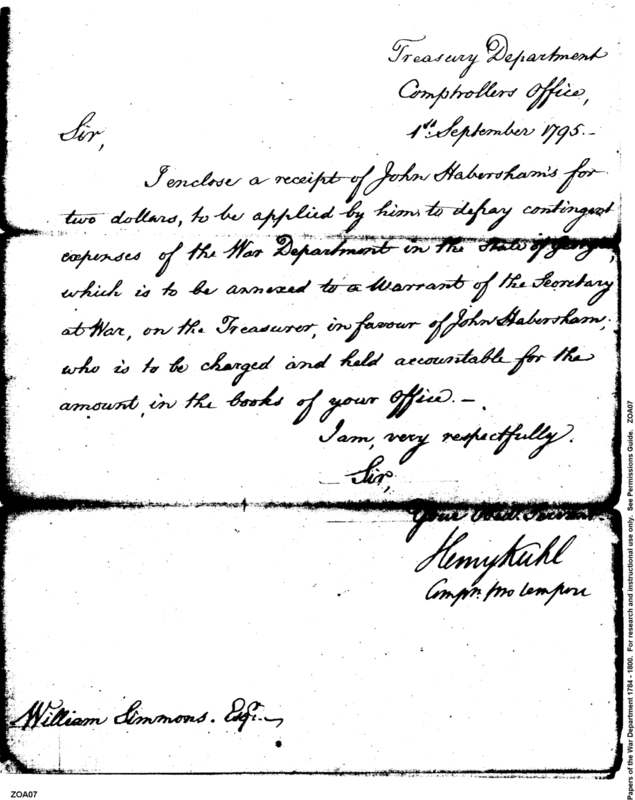 Treasury Department
Comptrollers Office,
1st September 1795.-
Sir,
I enclose a receipt of John Habersham's for
two dollars, to be applied by him to defray contingent
expenses of the War Department in the State of Georgia,
which is to be annexed to a Warrant of the Secretary
at War, on the Treasurer, in favour of John Habersham,
who is to be charged and held accountable for the
amount, in the books of your Office.-
I am, very respectfully.
Sir,
Your Obed. Servant
Henry Kuhl
Compr. pro tempore
William Simmons. Esqr.
ZOA07
Papers of the War Department 1784 - 1800. For research and instructional use only. See Permissions Guide. ZOA07